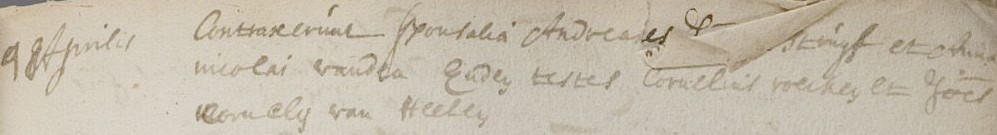 9 Aprilis Contraxerunt sponsalia Andreas struyf et Anna
nicolai vanden Eudey testes Cornelius et Joes
Cornely van Heesey